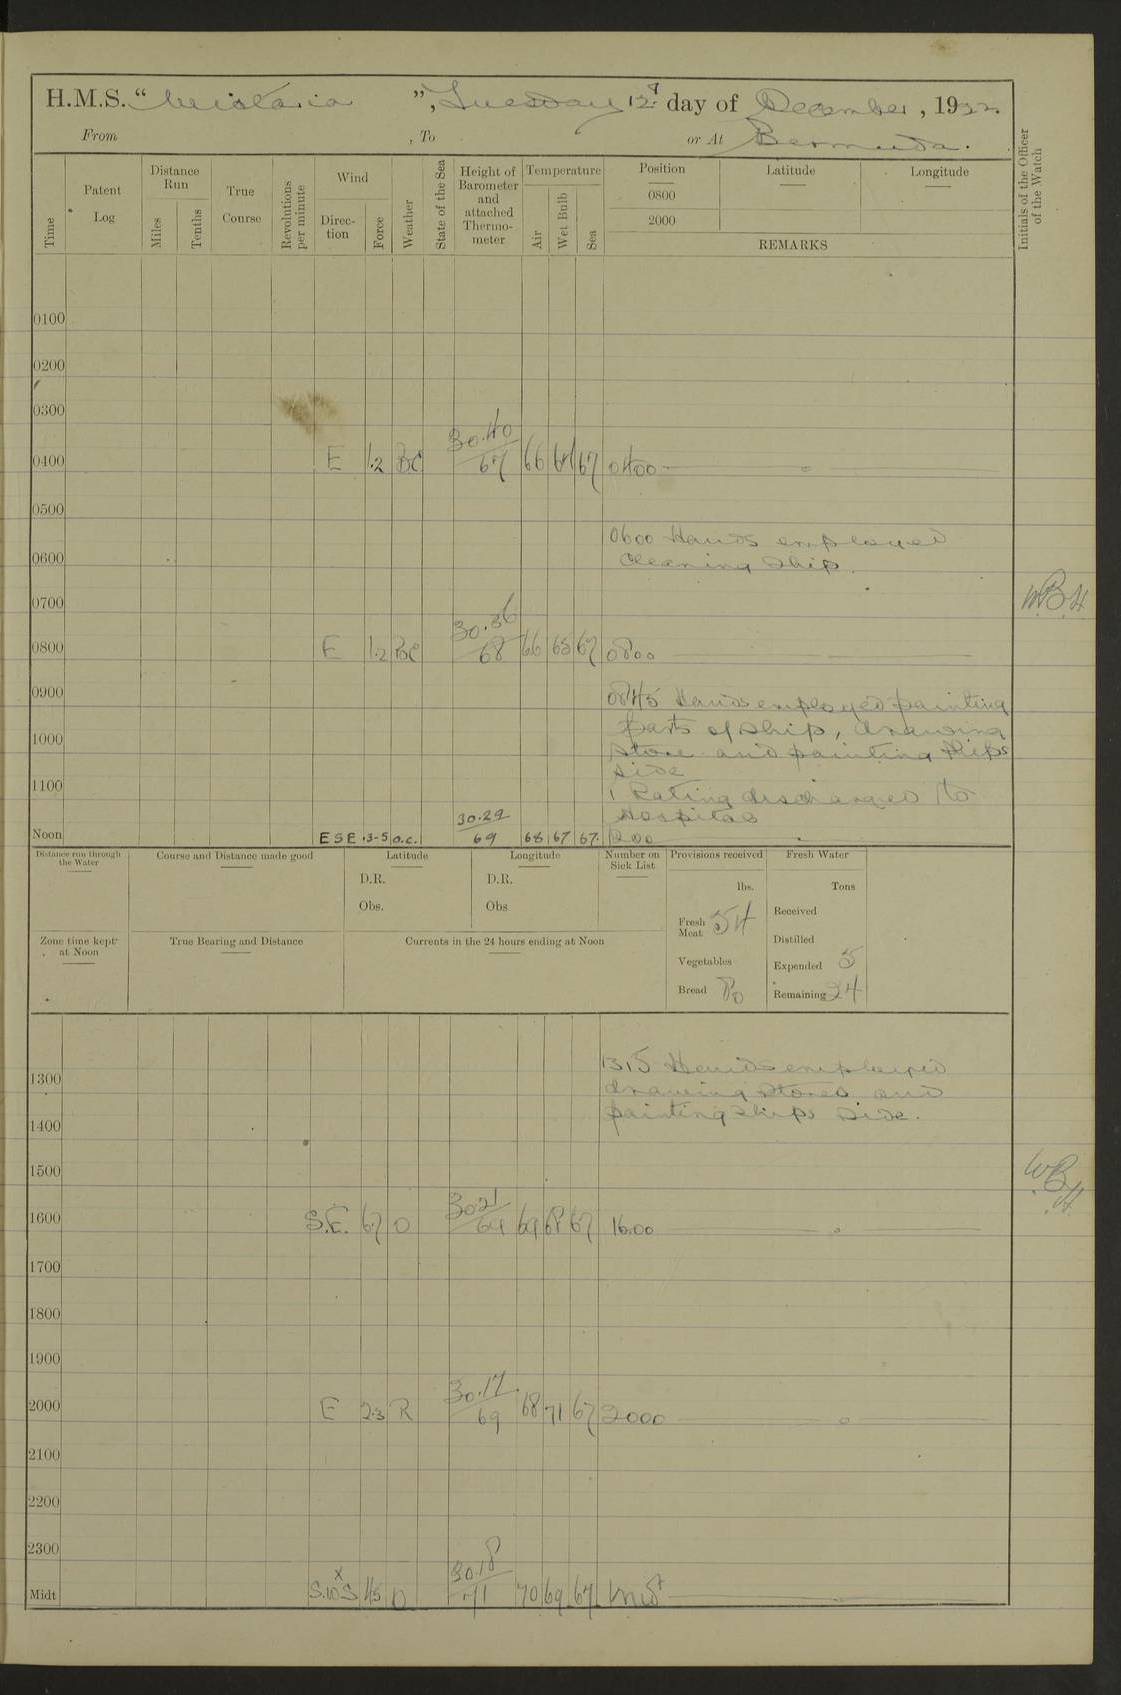 H.M.S. "Wistaria", Tuesday 12th day of December, 1922
From , To or At Bermuda.
Time
Patent Log
Distance Run
Miles
Tenths
True Course
Revolutions per minute
Wind
Direction
Force
Weather
State of the Sea
Height of Barometer and attached Thermometer
Temperature
Air
Wet Bulb
Sea
Position
0800
2000
Latitude
Longitude
REMARKS
Initials of the Officer of the Watch
0100
0200
0300
0400 E 1.2 BC 30.40 67 66 67 0400
0500
0600 Hands employed
0600 cleaning ship.
0700
W.B.H
0800 E 1.2 BC 30.36 68 66 65 67 0800
0900 0845 Hands employed painting
parts of ship, drawing
1000 store and painting ships
side
1100 1 Rating discharged to
Hospital
Noon ESE .3-5 o.c. 30.29 69 68 67 67. 1200
Distance run through the Water
Course and Distance made good
Latitude
D.R.
Obs.
Longitude
D.R.
Obs
Number on Sick List
Provisions received
lbs.
Fresh Meat 54
Vegetables
Bread 80
Fresh Water
Tons
Received
Distilled
Expended 5
Remaining 24
Zone time kept at Noon
True Bearing and Distance
Currents in the 24 hours ending at Noon
1315 Hands employed
1300 drawing stores and
painting ships side.
1400
1500
W.B.H.
1600 S.E. 6.7 O 30.21 64 69 68 67 1600
1700
1800
1900
2000 E 2.3 R 30.17 69 68 71 67 2000
2100
2200
2300
Midt S.W x S 4.5 O 30.18 71 70 69 67 Midt